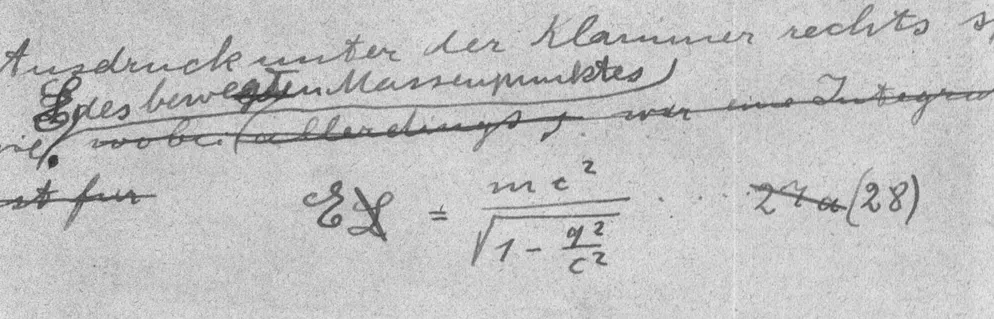 Ausdruck unter der Klammer rechts
E des bewegten Massenpunktes)
wobei (allerdings, war eine Integra
ist für
EL = mc² / √(1 - q²/c²) . . . 27a (28)